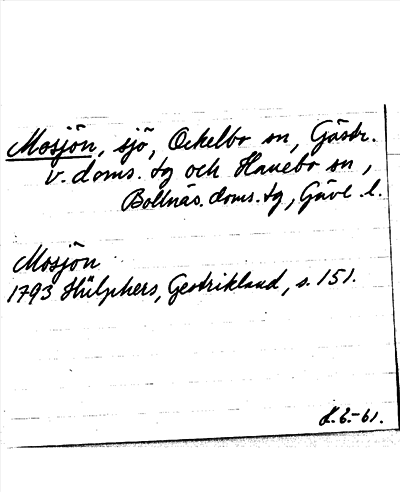 Mosjön, sjö, Ockelbo sn, Gästr.
v. doms. tg och Hanebo sn,
Bollnäs doms. tg, Gävl. l.
Mosjön
1793 Hülphers, Gestrikland, s. 151.